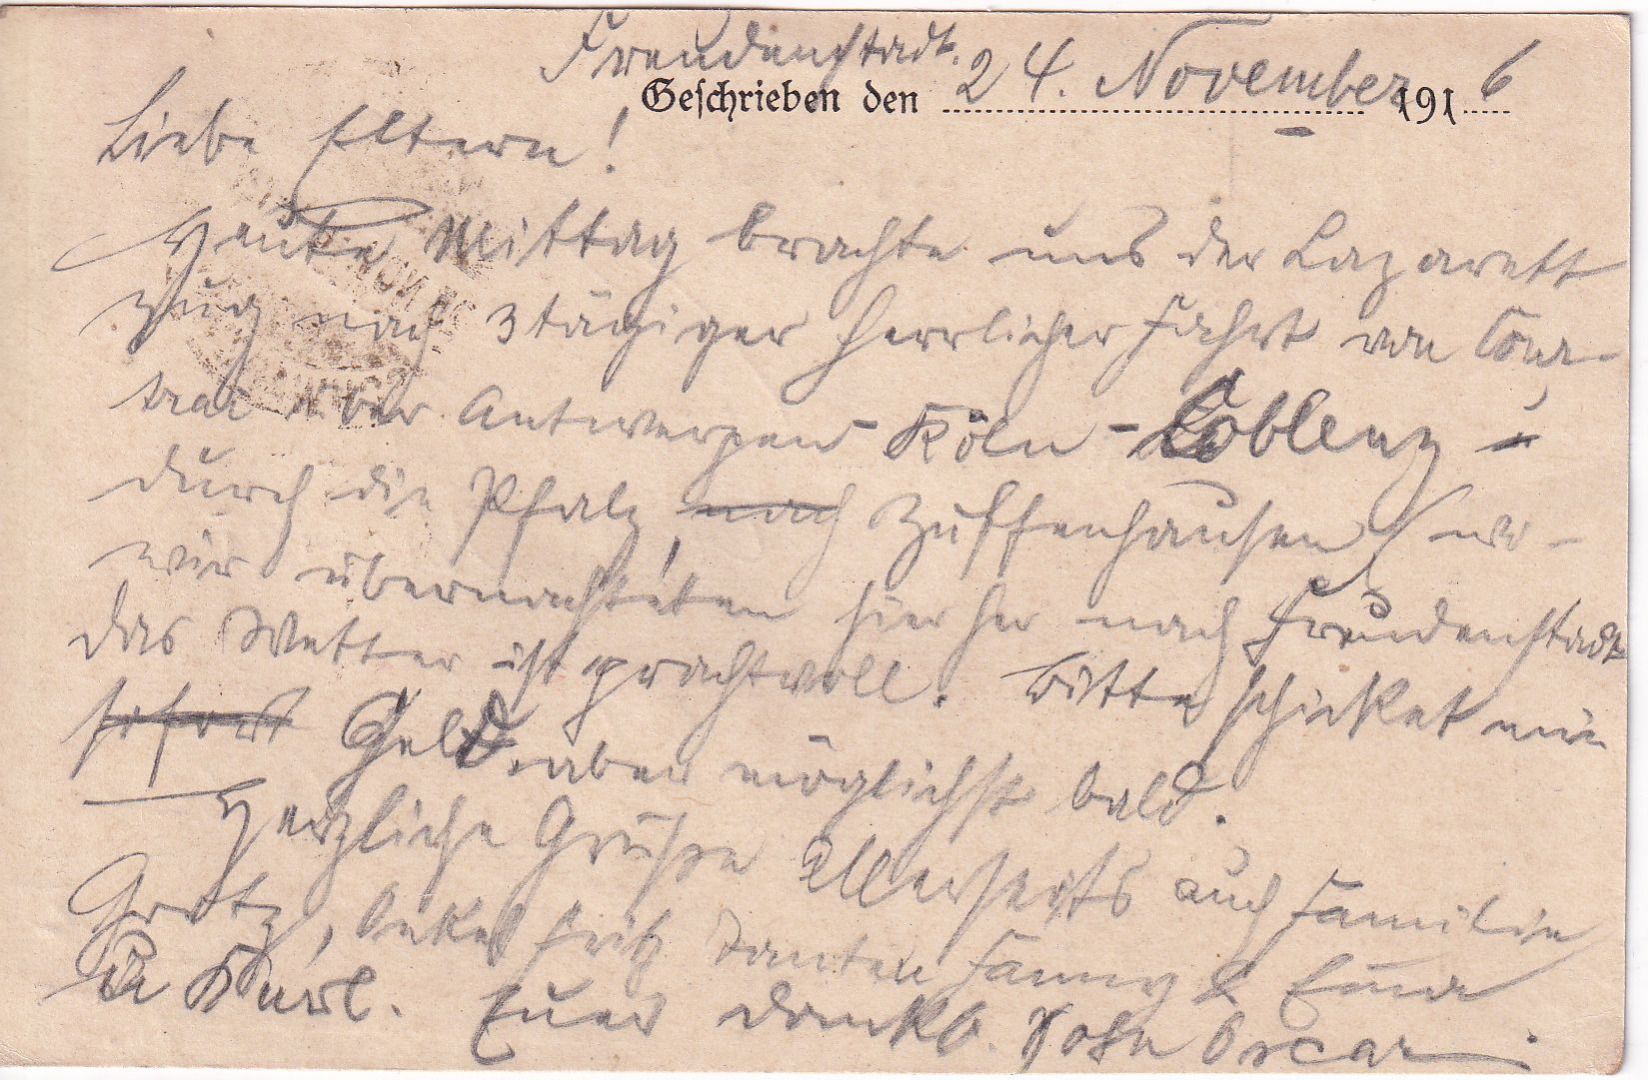 Freudenstadt.
Geschrieben den 24. November 1916
Liebe Eltern!
Heute Mittag brachte uns der Lazarett
zug nach 3tägiger herrlicher Fahrt von Cour-
trai über Antwerpen - Köln - Coblenz -
durch die Pfalz, nach Zuffenhausen (wo-
wir übernachteten hierher nach Freudenstadt
das Wetter ist prachtvoll. Bitte schicket mir
sofort Geld, aber möglichst bald.
Herzliche Grüße allerseits auch Familie
Grotz, Onkel Fritz Tanten Fanny & Emma
Karl. Euer dankb. Sohn Oscar